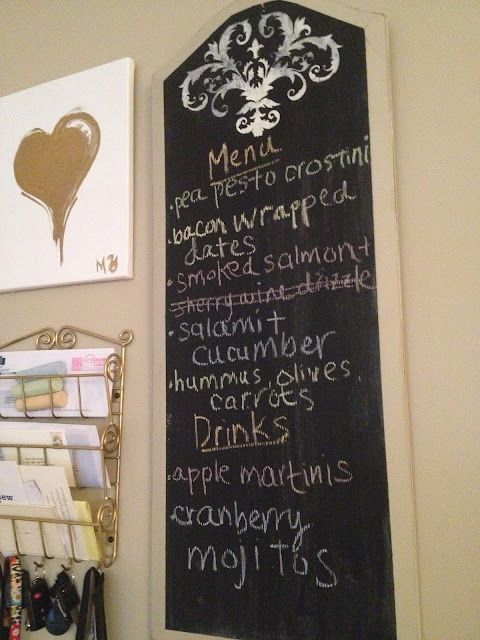 Menu
•pea pesto crostini
•bacon wrapped
dates
•smoked salmon +
sherry wine drizzle
•salami +
cucumber
•hummus, olives,
carrots
Drinks
•apple martinis
•cranberry
mojitos